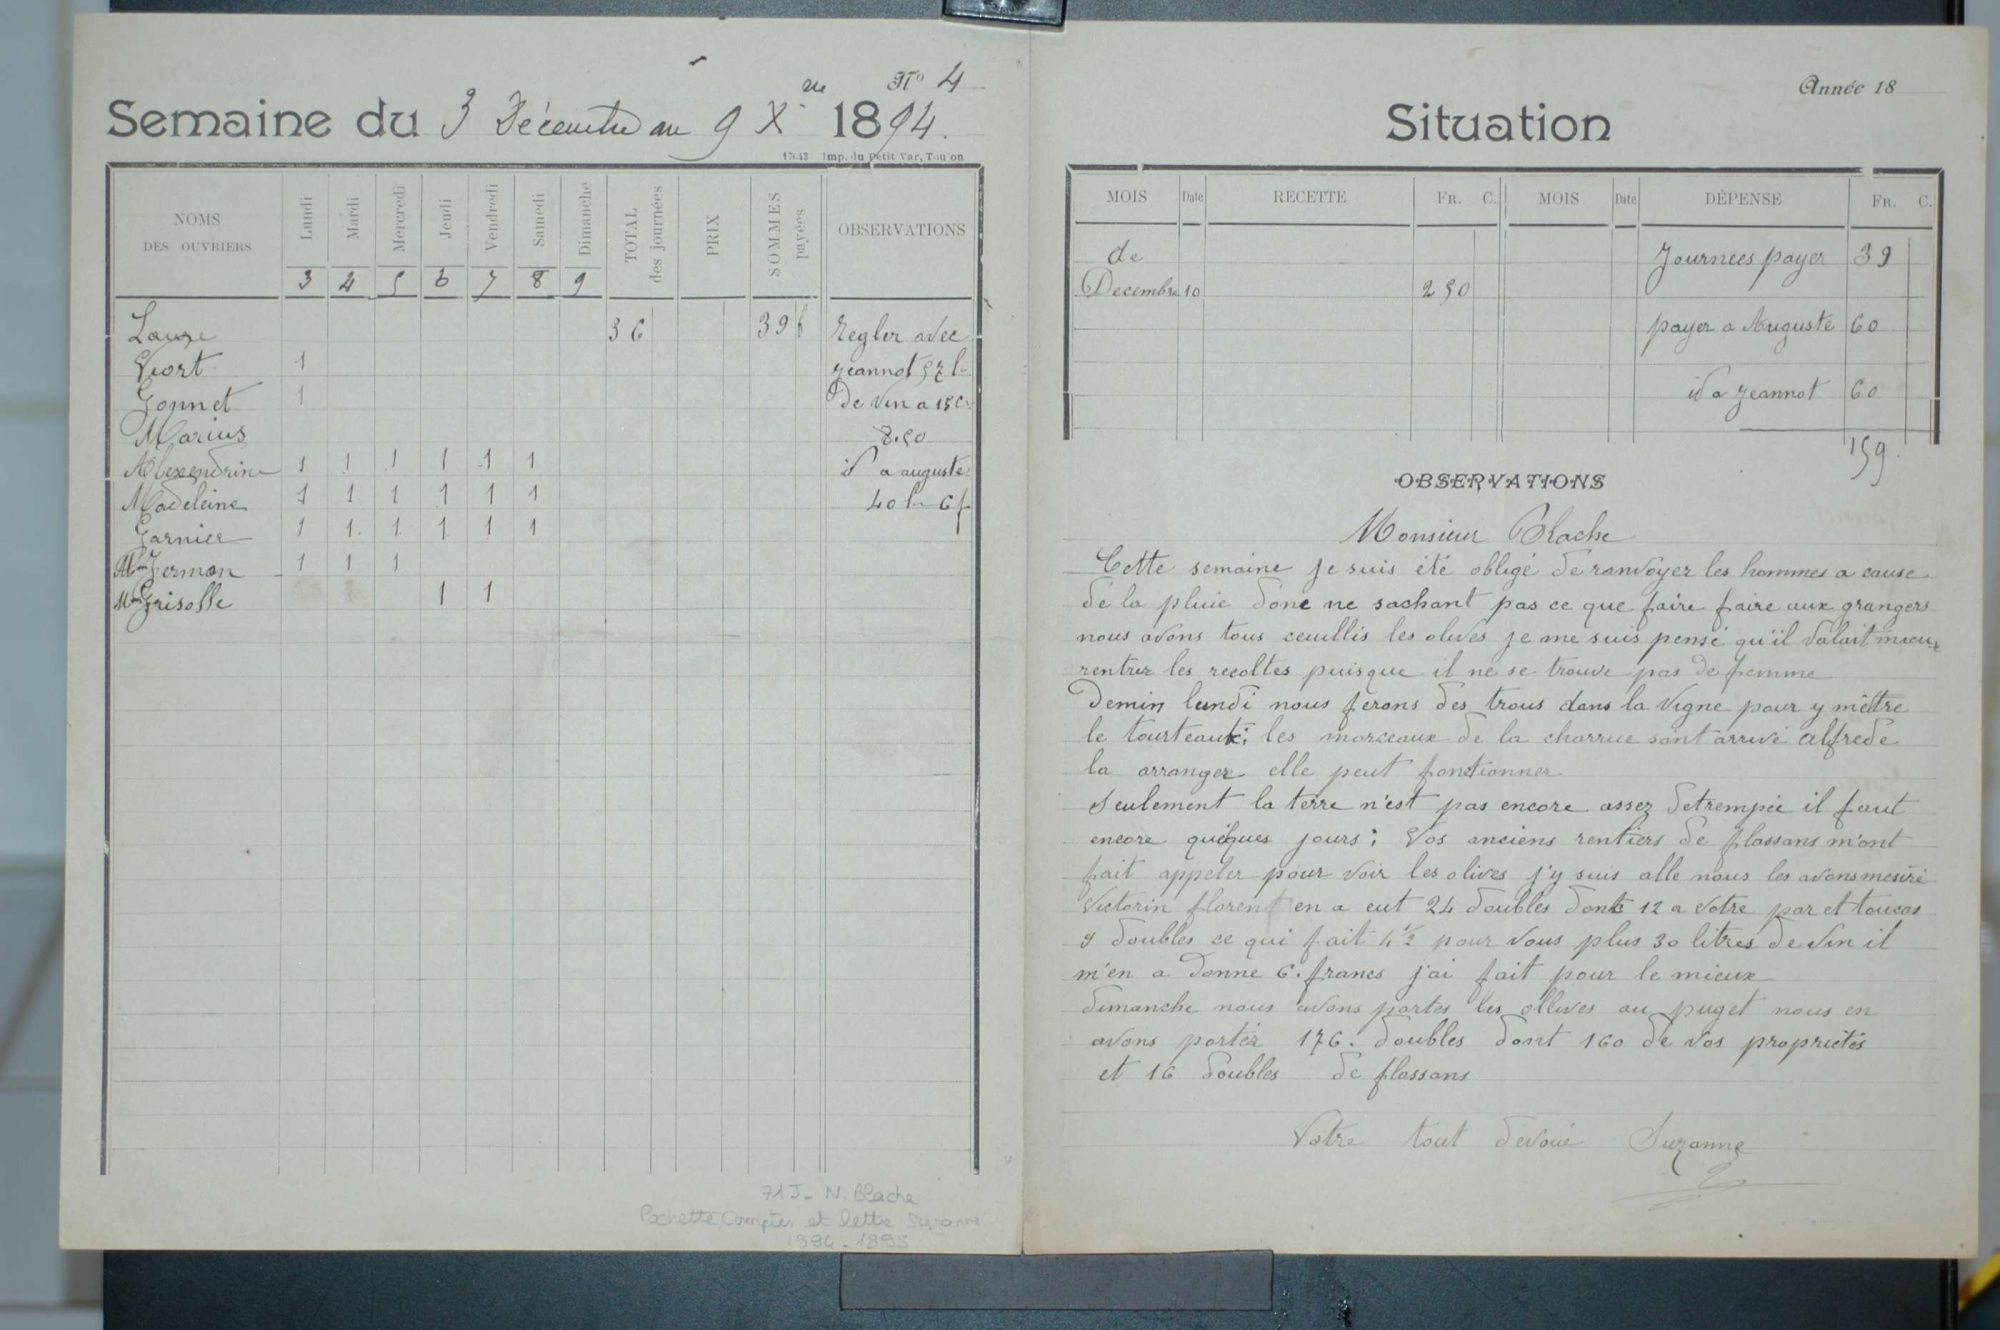 No 4
Semaine du 3 Décembre au 9 Xre 1894.
17643 Imp. du Petit Var, Toulon
NOMS DES OUVRIERS Lundi Mardi Mercredi Jeudi Vendredi Samedi Dimanche TOTAL des journées PRIX SOMMES payées OBSERVATIONS
3 4 5 6 7 8 9
Lauze 36 39 f Regler avec
Viort 1 jeannot 57 l
Jonnet 1 De vin a 15 c
Marius 8.50
Alexendrine 1 1 1 1 1 1 id a auguste
Madeleine 1 1 1 1 1 1 40 l 6 f
Garnier 1 1 1 1 1 1
Mme Jerman 1 1 1
Mme Grisolle 1 1
71 J - N. Blache
Pochette Comptes et lettre Suzanne
1894-1898
Année 18
Situation
MOIS Date RECETTE FR. C. MOIS Date DÉPENSE FR. C.
de Journees payer 39
Decembre 10 250
payer a Auguste 60
id a jeannot 60
159
OBSERVATIONS
Monsieur Blache
Cette semaine je suis été obligé de ranvoyer les hommes a cause
de la pluie donc ne sachant pas ce que faire faire aux grangers
nous avons tous ceuillis les olives je me suis pensé qu'il valait mieux
rentrer les recoltes puisque il ne se trouve pas de femme
Demin lundi nous ferons des trous dans la vigne pour y mettre
le tourteaux; les morceaux de la charrue sont arrivé alfrede
la arranger elle peut fonctionner.
Seulement la terre n'est pas encore assez detrempée il faut
encore quéques jours; Vos anciens rentiers de flassans m'ont
fait appeler pour voir les olives j'y suis alle nous les avons mesiré
Victorin florent en a eut 24 doubles dont 12 a votre par et toucas
9 doubles ce qui fait 4 1/2 pour vous plus 30 litres de vin il
m'en a donne 6. francs j'ai fait pour le mieux
dimanche nous avons portes les ollives au puget nous en
avons portér 176. doubles dont 160 de vos proprietés
et 16 doubles de flassans
Votre tout devoué Suzanne